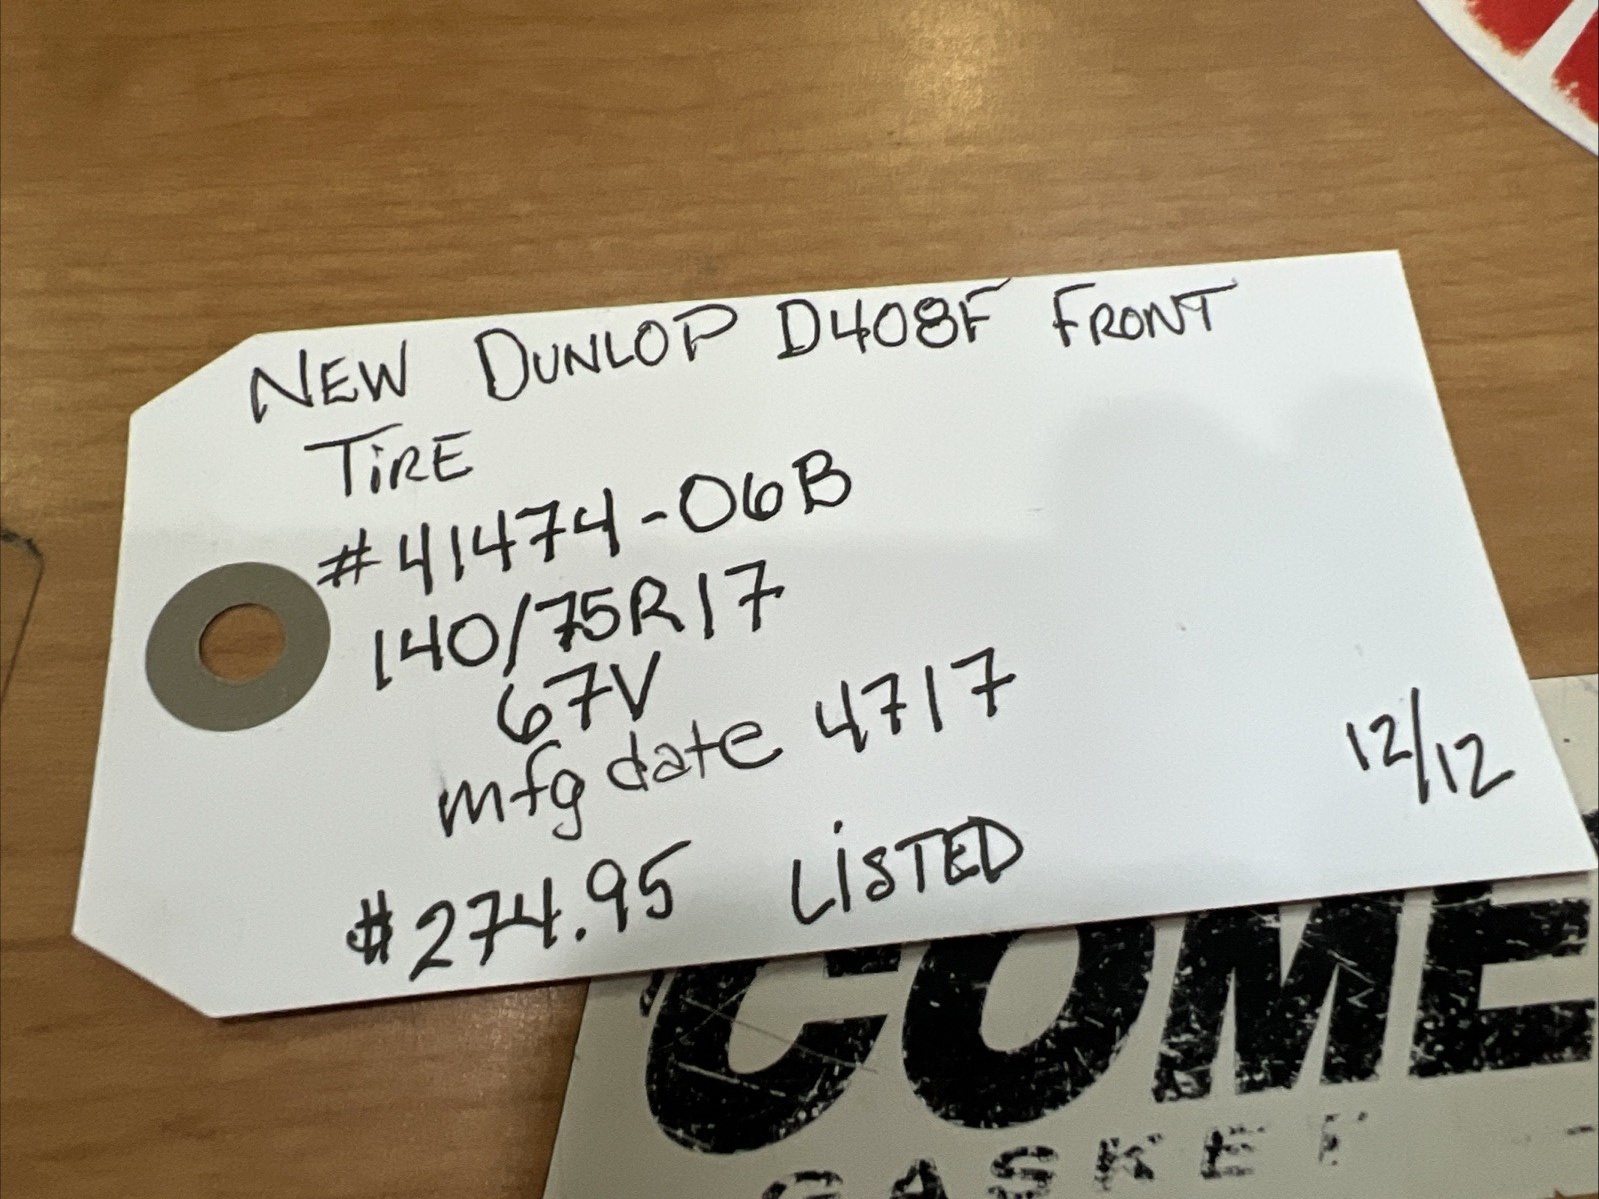 NEW DUNLOP D408F FRONT
TiRE
#41474-06B
140/75R17
67V
mfg date 4717
12/12
$274.95 LiSTED
COME
GASKET